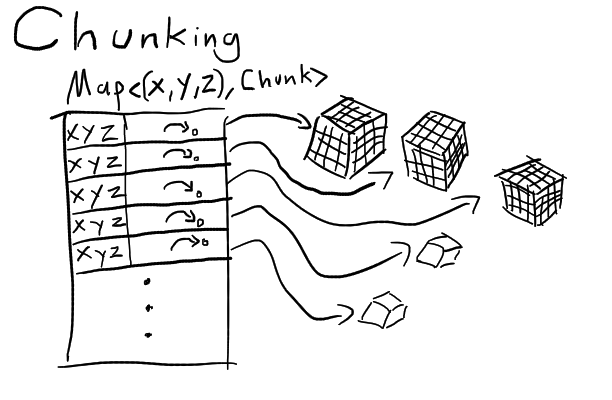 Chunking
Map<(x,y,z), Chunk>
XYZ
XYZ
XYZ
XYZ
XYZ